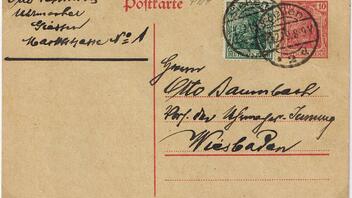 Postkarte
Uhrmacher
Giessen
Marktstrasse No 1
10
Herrn
Otto Baumbach
Vors. der Uhrmacher-Innung
Wiesbaden